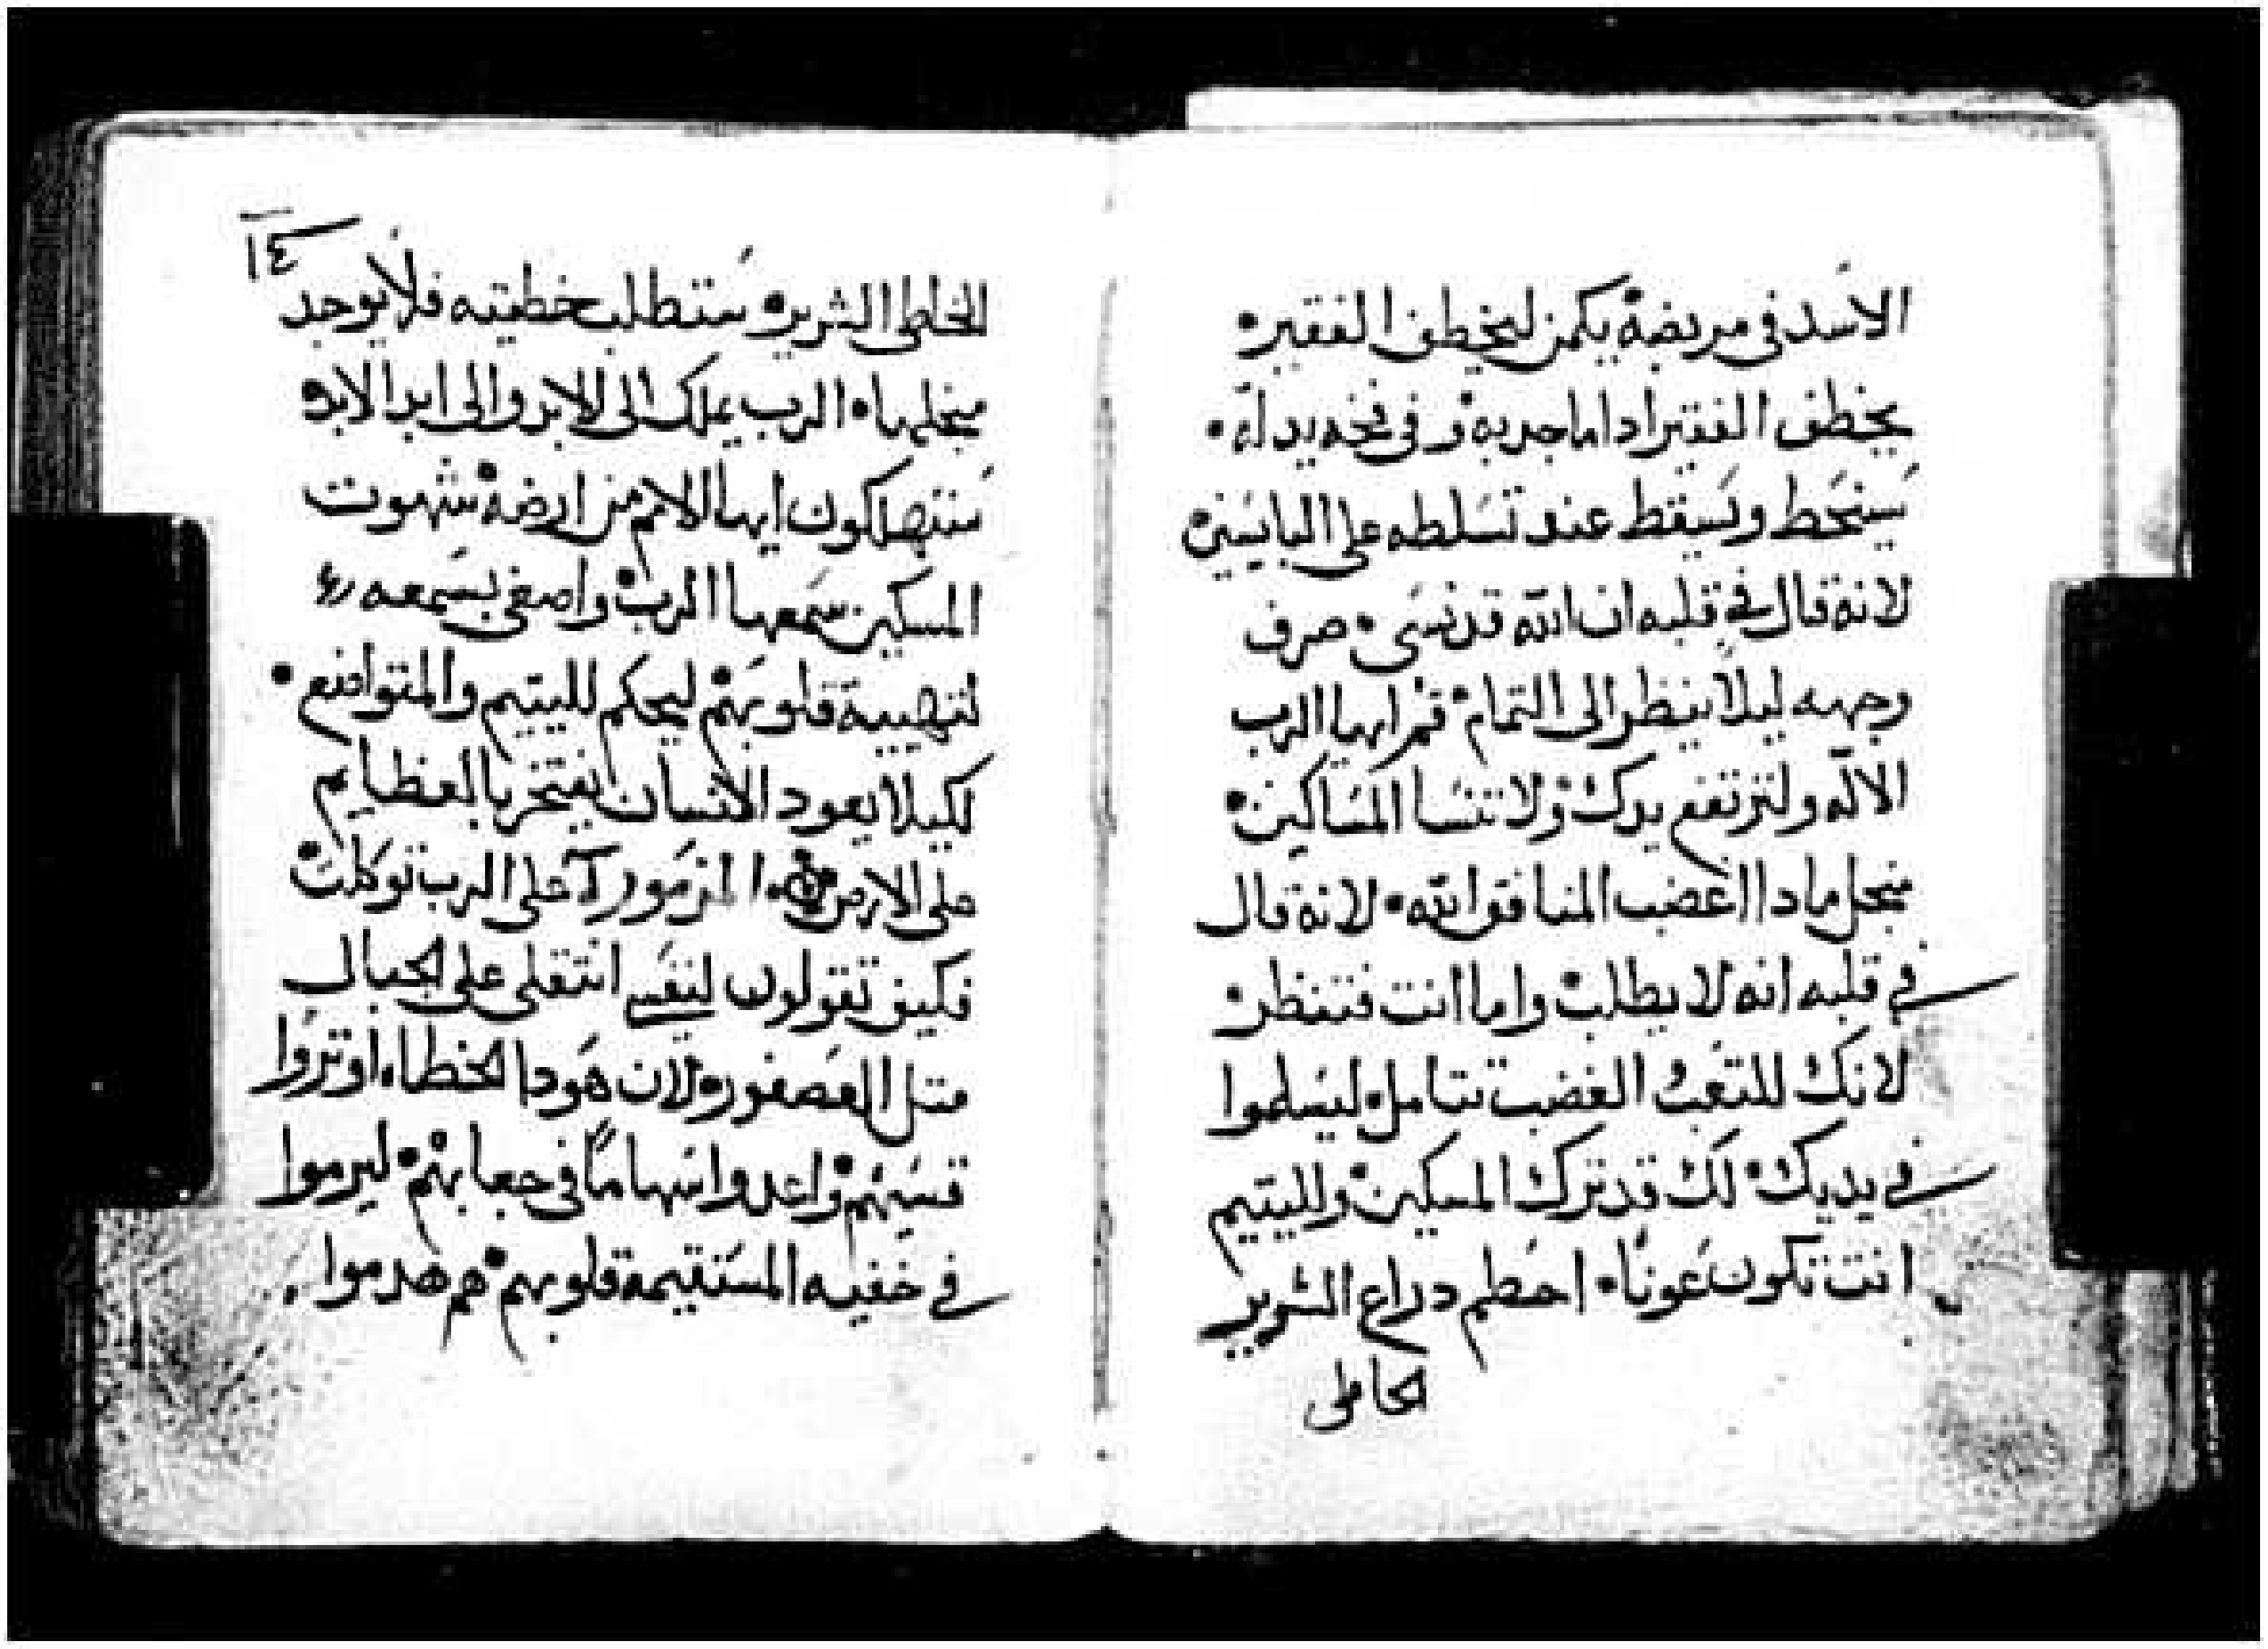 الاسد في مربضه يكمن ليخطف الفقير•
يخطف الفقير ادا ما جدبه• وفي فخه يدله•
سينحط ويسقط عند تسلطه على البايسين•
لانه قال في قلبه ان الله قد نسى• صرف
وجهه ليلا ينظر الى التمام• قم ايها الرب
الاله ولترتفع يدك• ولا تنسا المساكين•
منجل مادا اغضب المنافق الله• لانه قال
في قلبه انه لا يطلب• واما انت فتنظر•
لانك للتعب والغضب تتامل• ليسلموا
في يديك• لك قد ترك المسكين• ولليتيم
انت تكون عونًا• احطم دراع الشرير
الخاطى
١٤
الخاطى الشرير• ستطلب خطيته فلا يوجد
منجلها• الرب يملك الى الابد والى ابد الابد•
ستهلكون ايها الامم من ارضه• شهوت
المسكين سمعها الرب• واصغى بسمعه
لتهيية قلوبهم• ليحكم لليتيم والمتواضع•
لكيلا يعود الانسان يفتخر بالعظايم
على الارض• المزمور على الرب توكلت•
فكيف تقولون لنفسي انتقلى على الجبال
متل العصفور• لان هودا الخطاه اوتروا
قسيهم• واعدوا سهامًا في جعابهم• ليرموا
في خفيه المستقيمة قلوبهم• هم هدموا